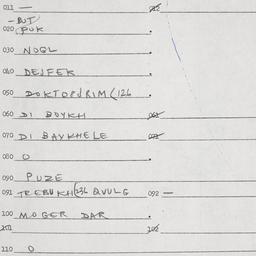 011 — 012
- BUT
020 PUK .
030 NOGL .
040 DEJFEK .
050 DOKTOPJRIM (126 .
060 DI BOYKH 061
070 DI BAYKHELE 071
080 0 .
090 PUZE
091 TREBUKH (236 QVULG 092 —
100 MOGER DAR .
101 102
110 0